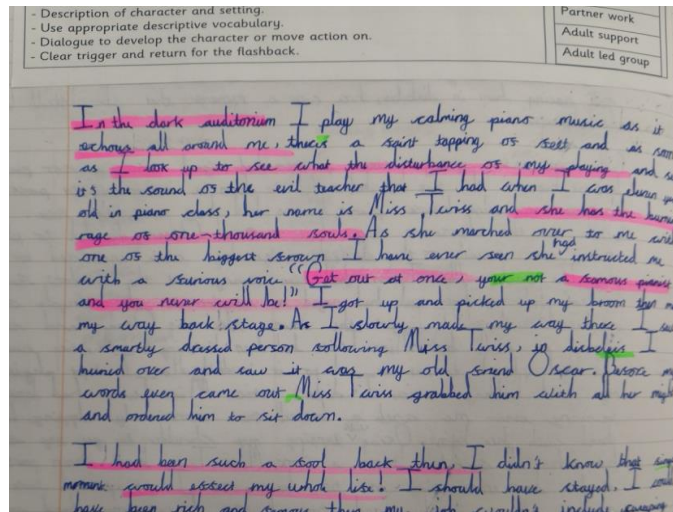 - Description of character and setting.
- Use appropriate descriptive vocabulary.
- Dialogue to develop the character or move action on.
- Clear trigger and return for the flashback.
Partner work
Adult support
Adult led group
In the dark auditorium I play my calming piano music as it
echous all around me, theris a faint tapping of feet and as soon
as I look up to see what the disturbance of my playing and
it's the sound of the evil teacher that I had when I was eleven
old in piano class, her name is Miss Twiss and she has the
rage of one-thousand souls. As she marched over to me
one of the biggest frown I have ever seen she had instructed me
with a furious voice "Get out at once, your not a famous
and you never will be!" I got up and picked up my broom
my way back stage. As I slowly made my way there I
a smartly dressed person following Miss Twiss, in disbeleif I
huried over and saw it was my old freind Oscar. Before
words even came out Miss Twiss grabbed him with all her
and ordered him to sit down.
I had been such a fool back then, I didn't know that
moment would effect my whole life! I should have stayed, I
have been rich and famous then my job wouldn't include